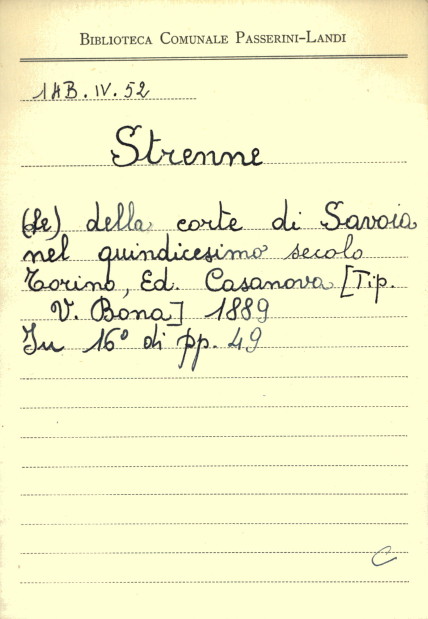 BIBLIOTECA COMUNALE PASSERINI-LANDI
1AB.IV.52
Strenne
(Le) della corte di Savoia
nel quindicesimo secolo
Torino, Ed. Casanova [Tip.
V. Bona] 1889
In 16° di pp. 49
C